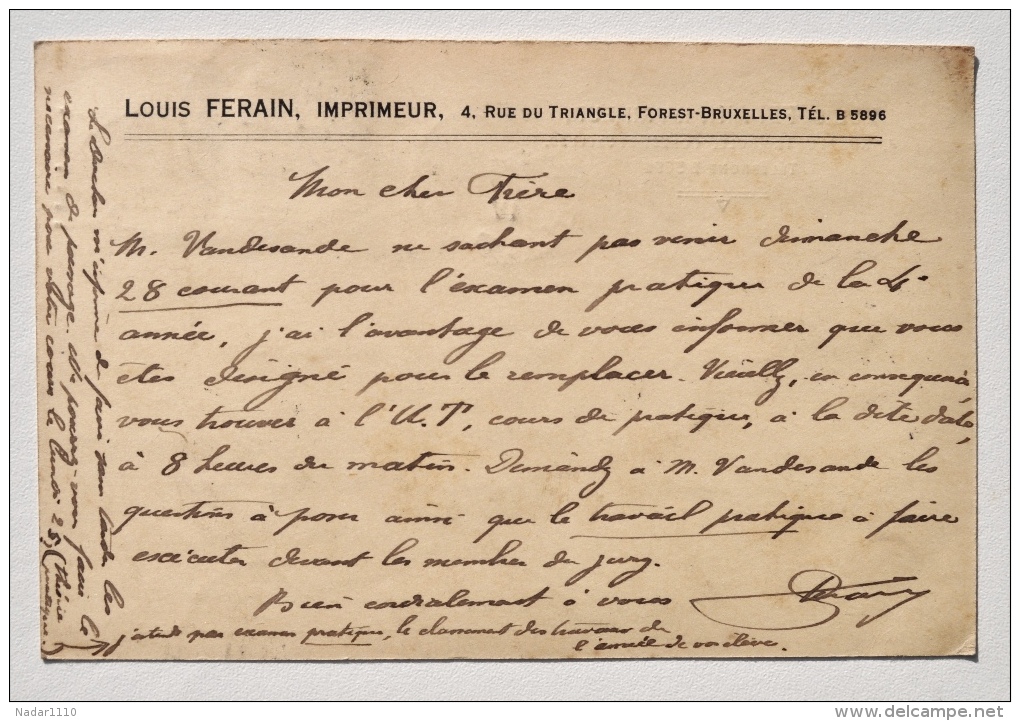 LOUIS FERAIN, IMPRIMEUR, 4, RUE DU TRIANGLE, FOREST-BRUXELLES, TÉL. B 5896
Mon cher Frère
M. Vandesande ne sachant pas venir dimanche
28 courant pour l'examen pratique de la 4e
année, j'ai l'avantage de vous informer que vous
êtes désigné pour le remplacer. Veuillez, en conséquence,
vous trouver à l'U.T, cours de pratique, à la dite date,
à 8 heures du matin. Demandez à M. Vandesande les
questions à poser ainsi que le travail pratique à faire
exécuter devant les membres du jury.
Bien cordialement à vous
j'entends par examen pratique, le classement des travaux de
l'année de vos élèves.
m'informe de faire sans tarder les
examen de passage. pourrez-vous faire le
nécessaire pour votre cours le lundi
Nadar1110
delcampe.net